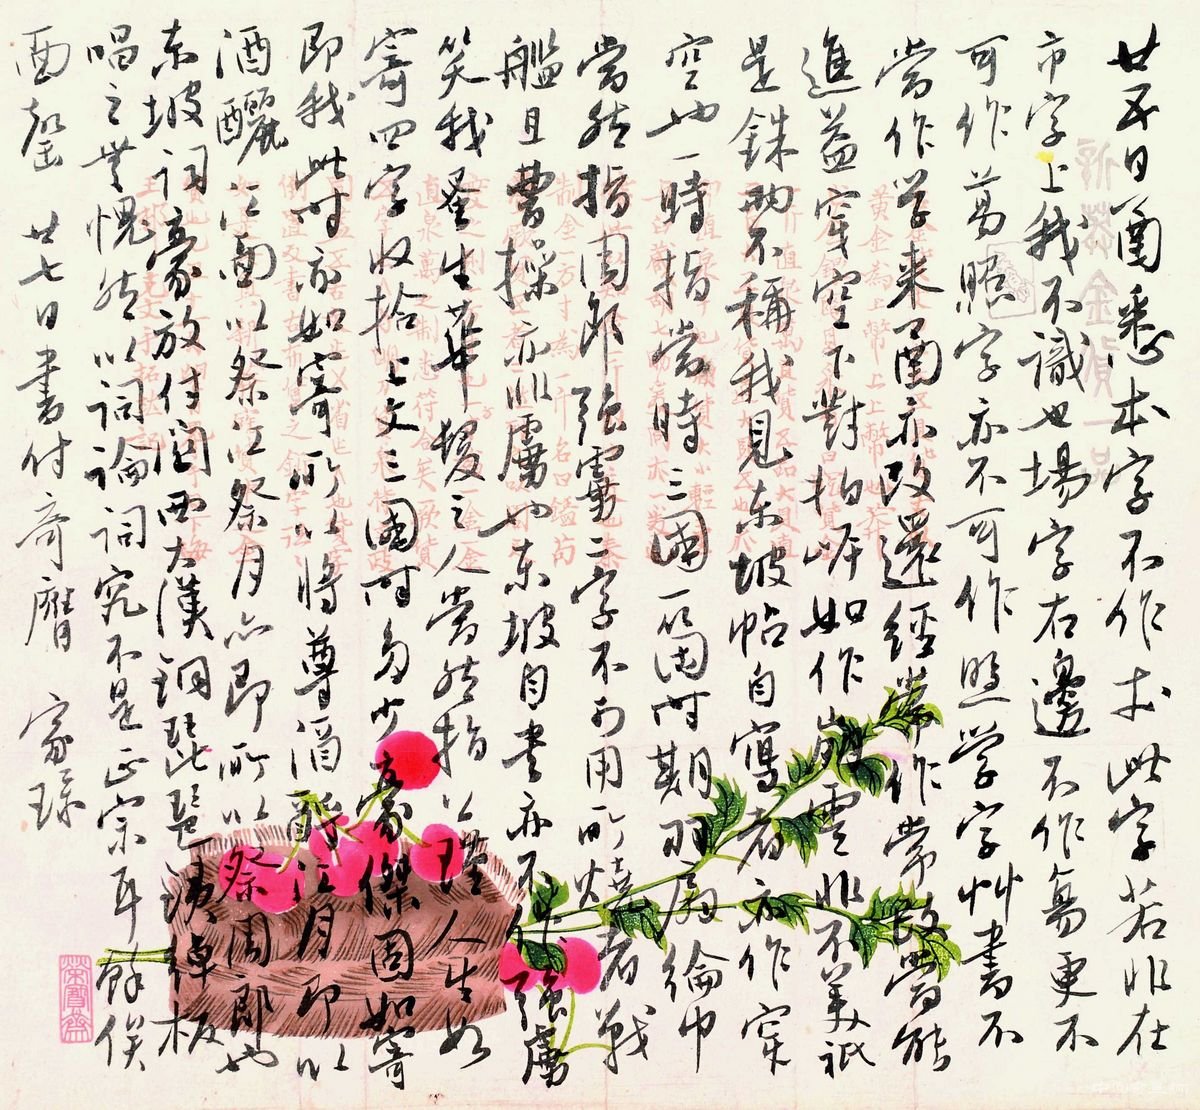 廿五日函悉本字不作朩此字若非在
市字上我不識也場字右邊不作昜更不
可作易照字亦不可作照学字艸書不
當作学来函亦改還經常作常改當能
進益穿空下對拍岸如作崩雲非不美祇
是銖兩不稱我見东坡帖自寫者亦作穿
空也一時指當時三國一箇时期羽扇綸巾
當然指周郎强虜二字不可用所燒者戰
艦且曹操亦非虜也东坡自書亦不作强虜
笑我蚤生華髮之人當然指公瑾人生如
寄四字收拾上文三國时多少豪傑固如寄
即我此时亦如寄所以將尊酒酹江月即以
酒釃江面以祭江祭月亦即所以祭周郎也
东坡詞豪放付関西大漢銅琵琶鐵綽板
唱之無愧然以詞論詞究不是正宗耳餘俟
面罄 廿七日書付奇膺 家
榮寶齋